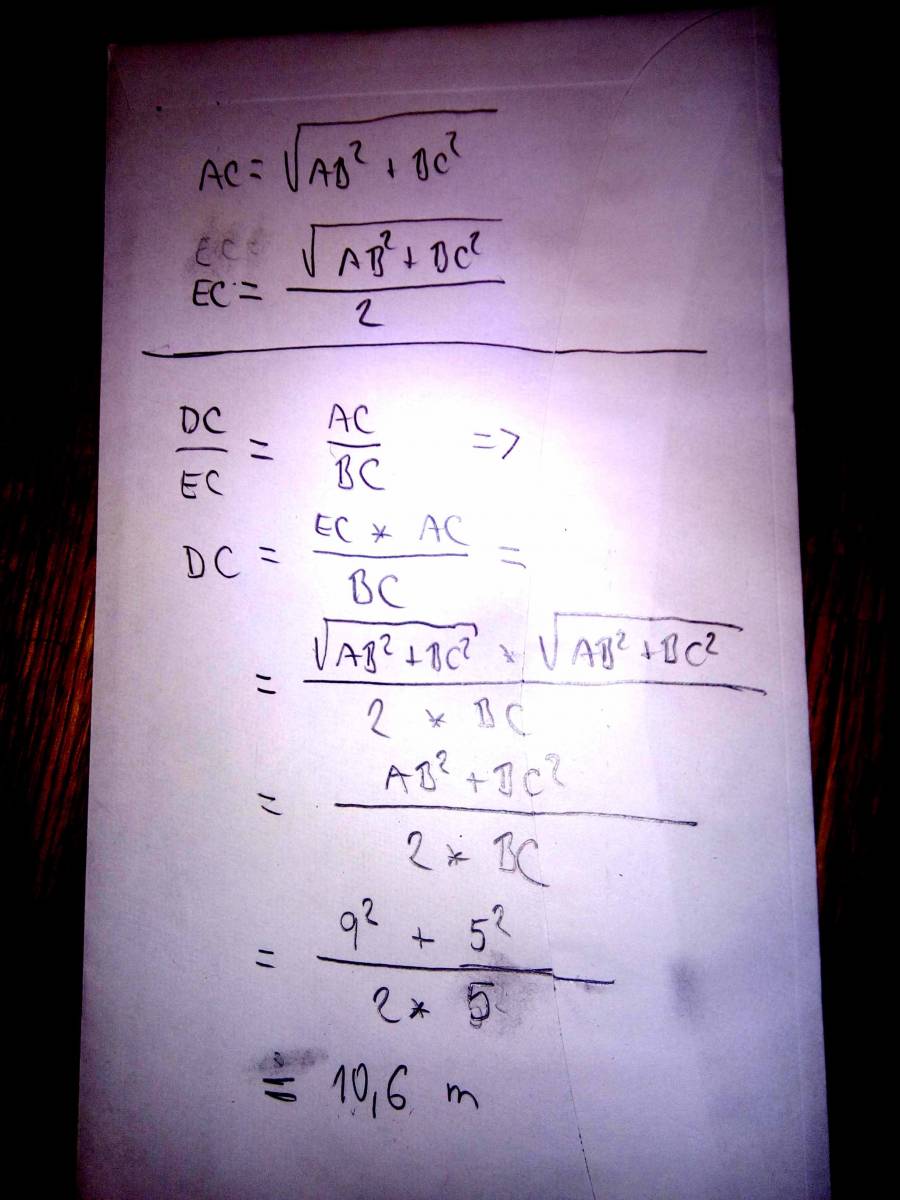 AC = √(AB² + BC²)
EC =
EC = √(AB² + BC²) / 2
DC / EC = AC / BC =>
DC = EC * AC / BC =
= √(AB² + BC²) * √(AB² + BC²) / 2 * BC
= AB² + BC² / 2 * BC
= 9² + 5² / 2 * 5
= 10,6 m